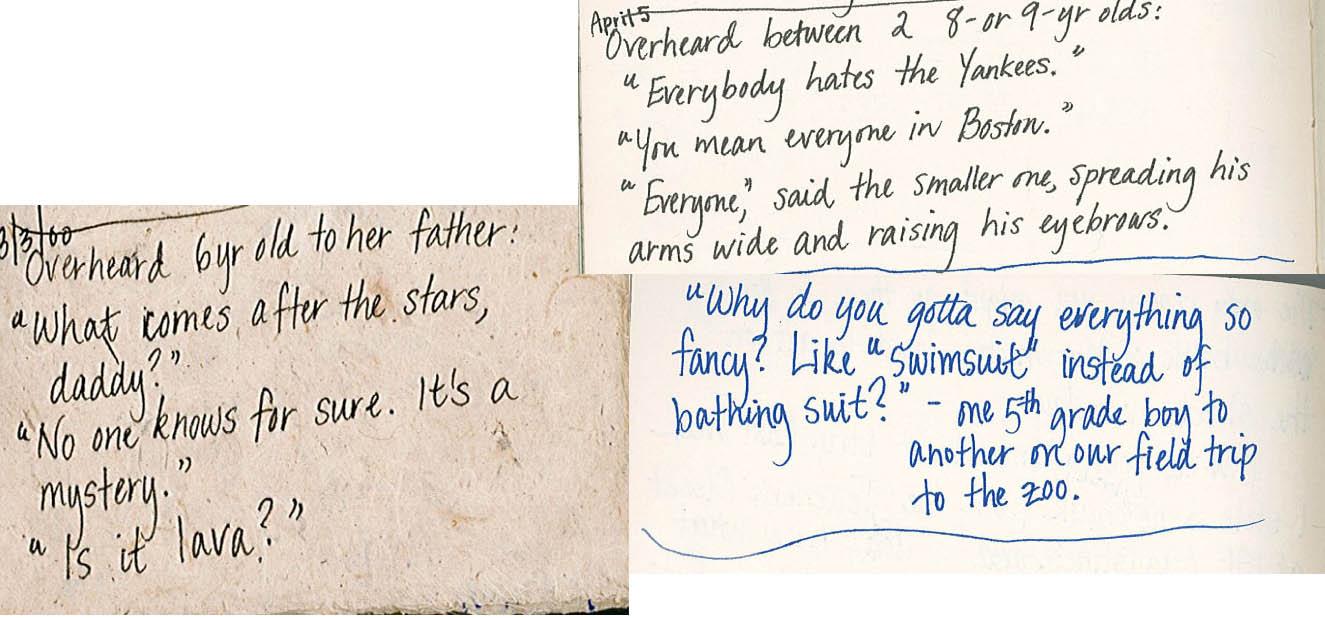 April 5
Overheard between 2 8-or 9-yr olds:
"Everybody hates the Yankees."
"You mean everyone in Boston."
"Everyone," said the smaller one, spreading his
arms wide and raising his eyebrows.
3/3/00
Overheard 6yr old to her father:
"What comes after the stars,
daddy?"
"No one knows for sure. It's a
mystery."
"Is it lava?"
"Why do you gotta say everything so
fancy? Like "swimsuit" instead of
bathing suit?" - one 5th grade boy to
another on our field trip
to the zoo.